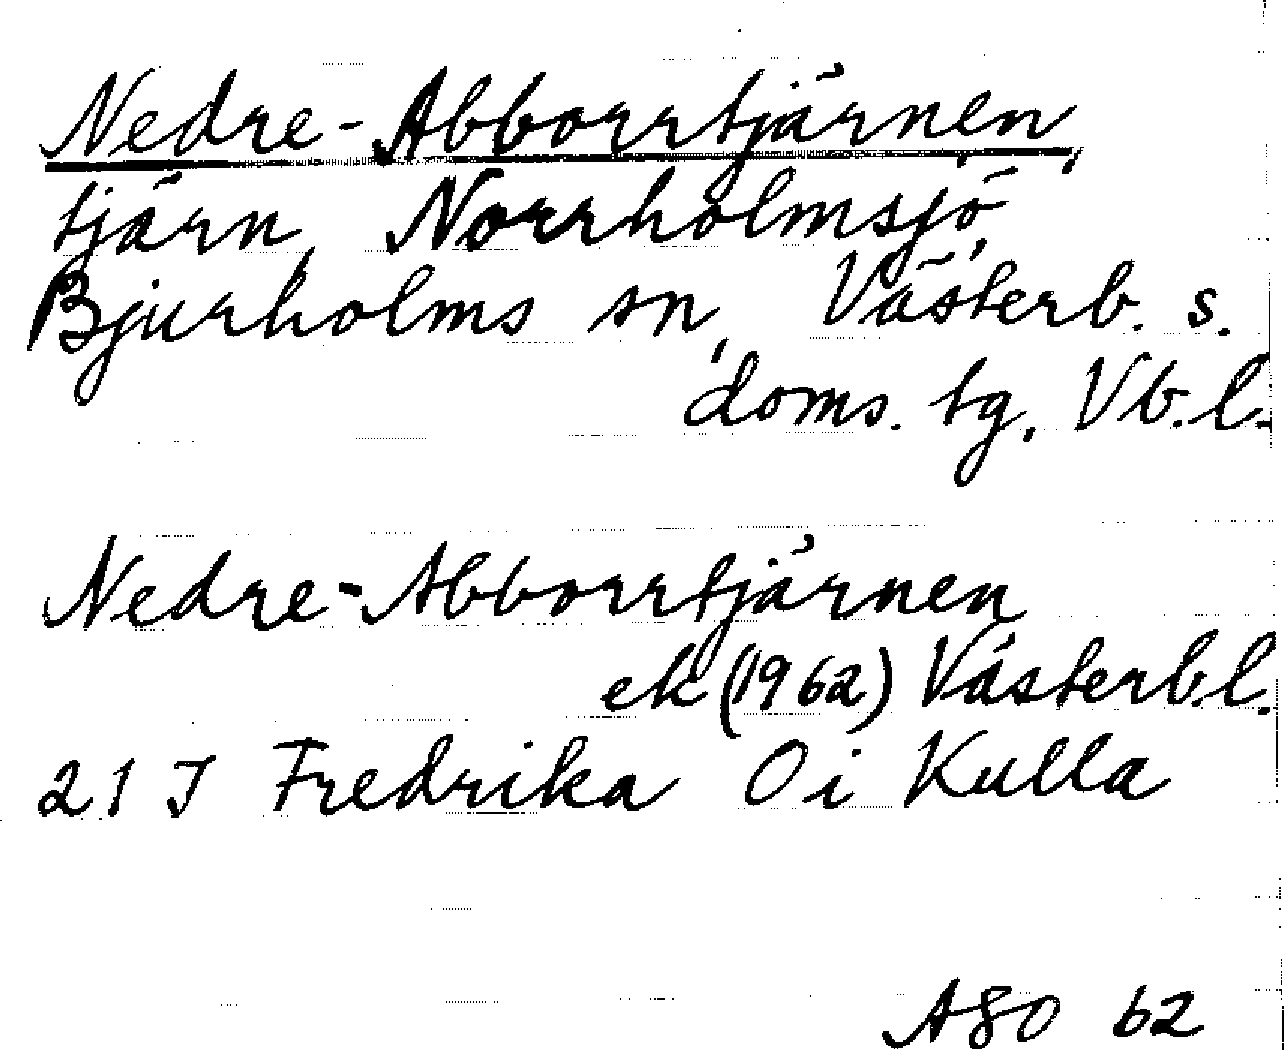 Nedre-Abborrtjärnen,
tjärn, Norrholmsjö,
Bjurholms sn, Västerb. s.
doms. tg. Vb. l.
Nedre-Abborrtjärnen
ek (1962) Västerb. l.
21 J Fredrika O i Kulla
ASO 62